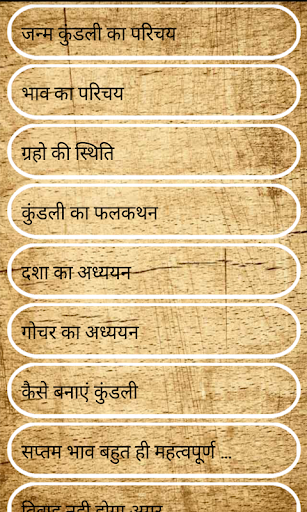 जन्म कुंडली का परिचय
भाव का परिचय
ग्रहो की स्थिति
कुंडली का फलकथन
दशा का अध्ययन
गोचर का अध्ययन
कैसे बनाएं कुंडली
सप्तम भाव बहुत ही महत्वपूर्ण ...
विवाह नही होगा अगर